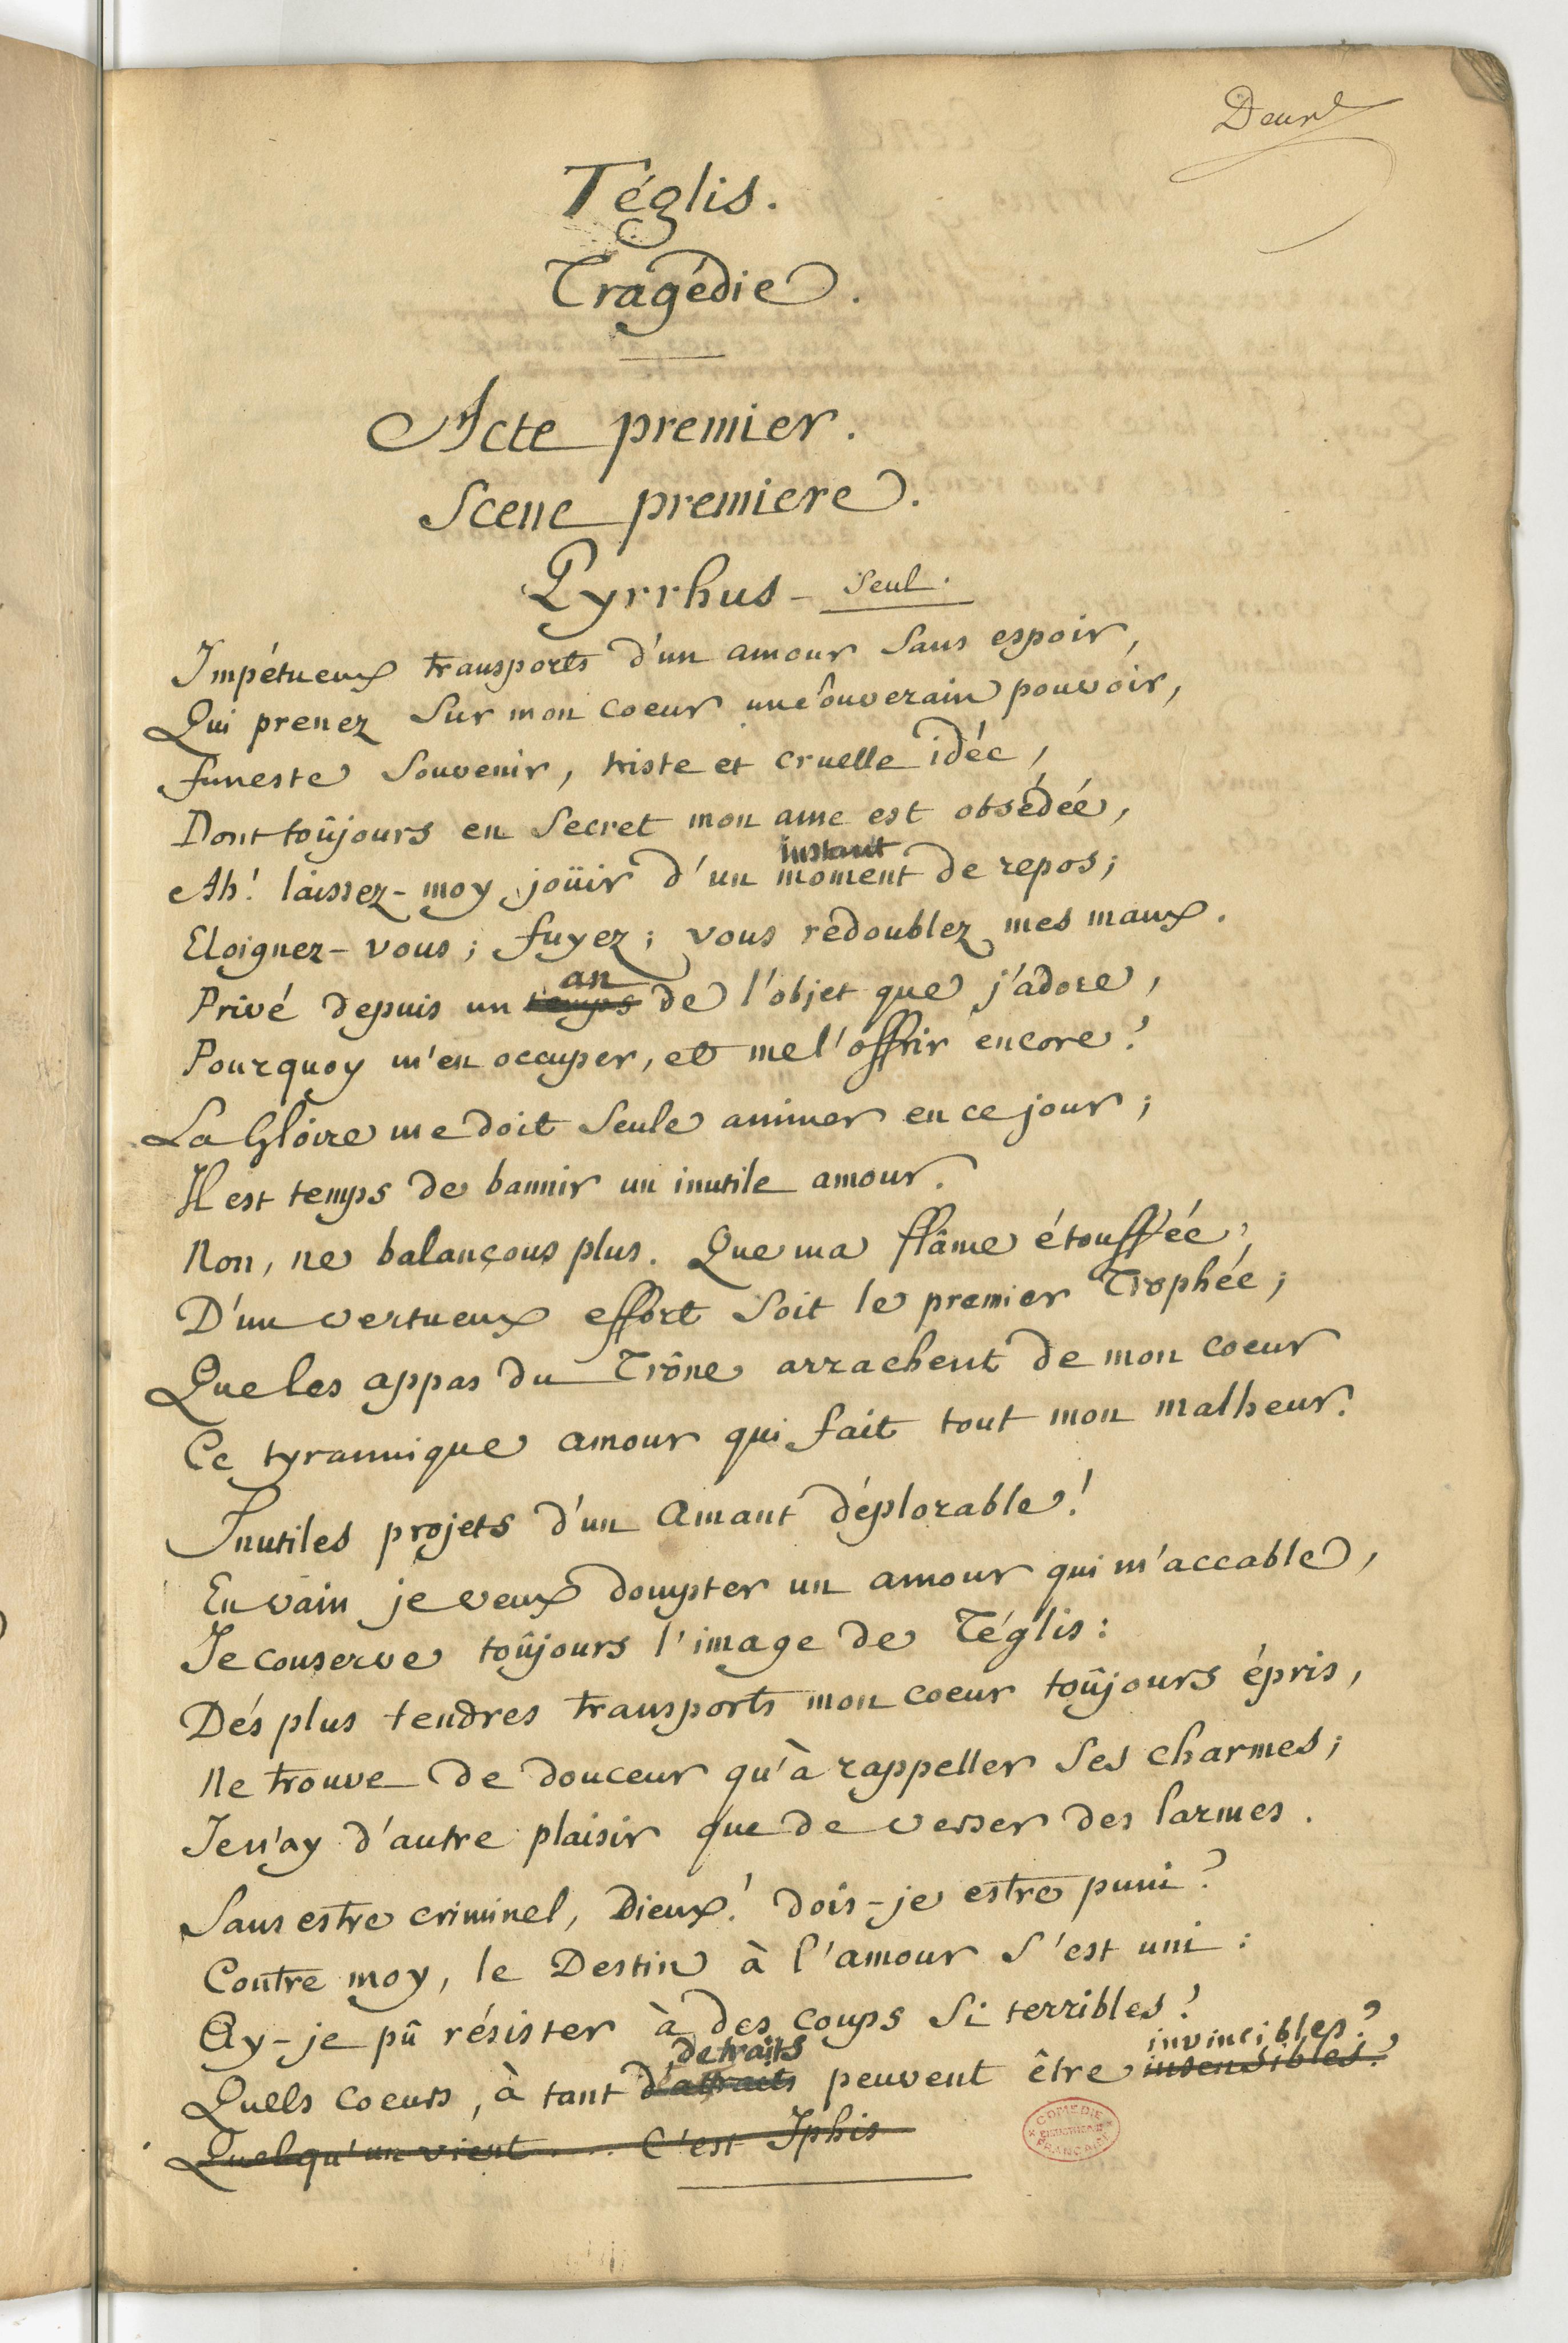 Deux
Téglis.
Tragédie.
Acte premier.
Scene premiere.
Pyrrhus - Seul.
Impétueux transports d'un amour sans espoir,
Qui prenez sur mon coeur un souverain pouvoir,
funeste souvenir, triste et cruelle idée,
Dont toûjours en secret mon ame est obsédée,
instant
Ah! laissez-moy joüir d'un moment de repos;
Eloignez-vous; fuyez; vous redoublez mes maux.
an
Privé depuis un temps de l'objet que j'adore,
Pourquoy m'en occuper, et me l'offrir encore?
La Gloire me doit seule animer en ce jour;
Il est temps de bannir un inutile amour.
Non, ne balançons plus. Que ma flâme étouffée,
D'un vertueux effort soit le premier Trophée;
Que les appas du Trône arrachent de mon coeur
Ce tyrannique amour qui fait tout mon malheur.
Inutiles projets d'un Amant déplorable!
En vain je veux dompter un amour qui m'accable,
Je conserve toûjours l'image de Téglis:
Dés plus tendres transports mon coeur toûjours épris,
Ne trouve de douceur qu'à rappeller ses charmes;
Je n'ay d'autre plaisir que de verser des larmes.
Sans estre criminel, Dieux! dois-je estre puni?
Contre moy, le Destin à l'amour s'est uni:
Ay-je pû résister à des coups si terribles?
de traits invincibles?
Quels coeurs, à tant d'attraits peuvent être insensibles?
Quelqu'un vient .... C'est Iphis
COMÉDIE FRANÇAISE